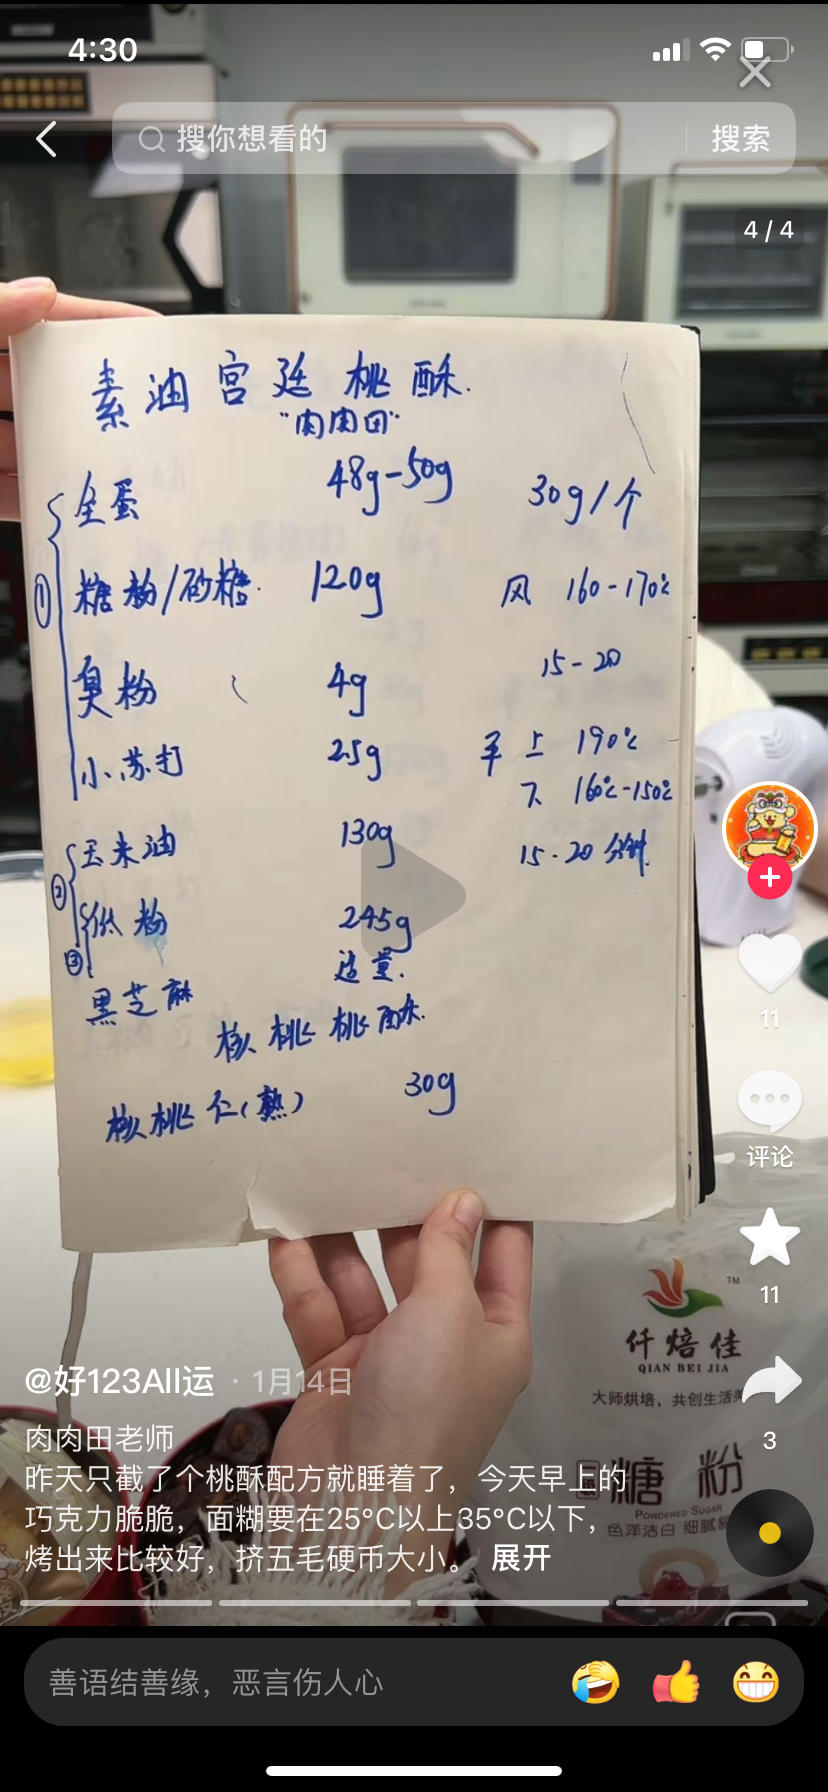 4:30
搜你想看的
搜索
4 / 4
素油宫廷桃酥.
"肉肉田"
全蛋 48g-50g 30g/个
① 糖粉/砂糖. 120g 风 160-170℃
15-20
臭粉 4g
小苏打 25g 平 上 190℃
下 160℃-150℃
② 玉米油 130g 15-20分钟.
③ 低粉 245g
黑芝麻 适量.
核桃桃酥.
核桃仁(熟) 30g
11
评论
11
3
TM
仟焙佳
QIAN BEI JIA
大师烘培，共创生活
糖粉
POWDERED SUGAR
色泽洁白 细腻
@好123All运 · 1月14日
肉肉田老师
昨天只截了个桃酥配方就睡着了，今天早上的
巧克力脆脆，面糊要在25°C以上35°C以下，
烤出来比较好，挤五毛硬币大小。 展开
善语结善缘，恶言伤人心